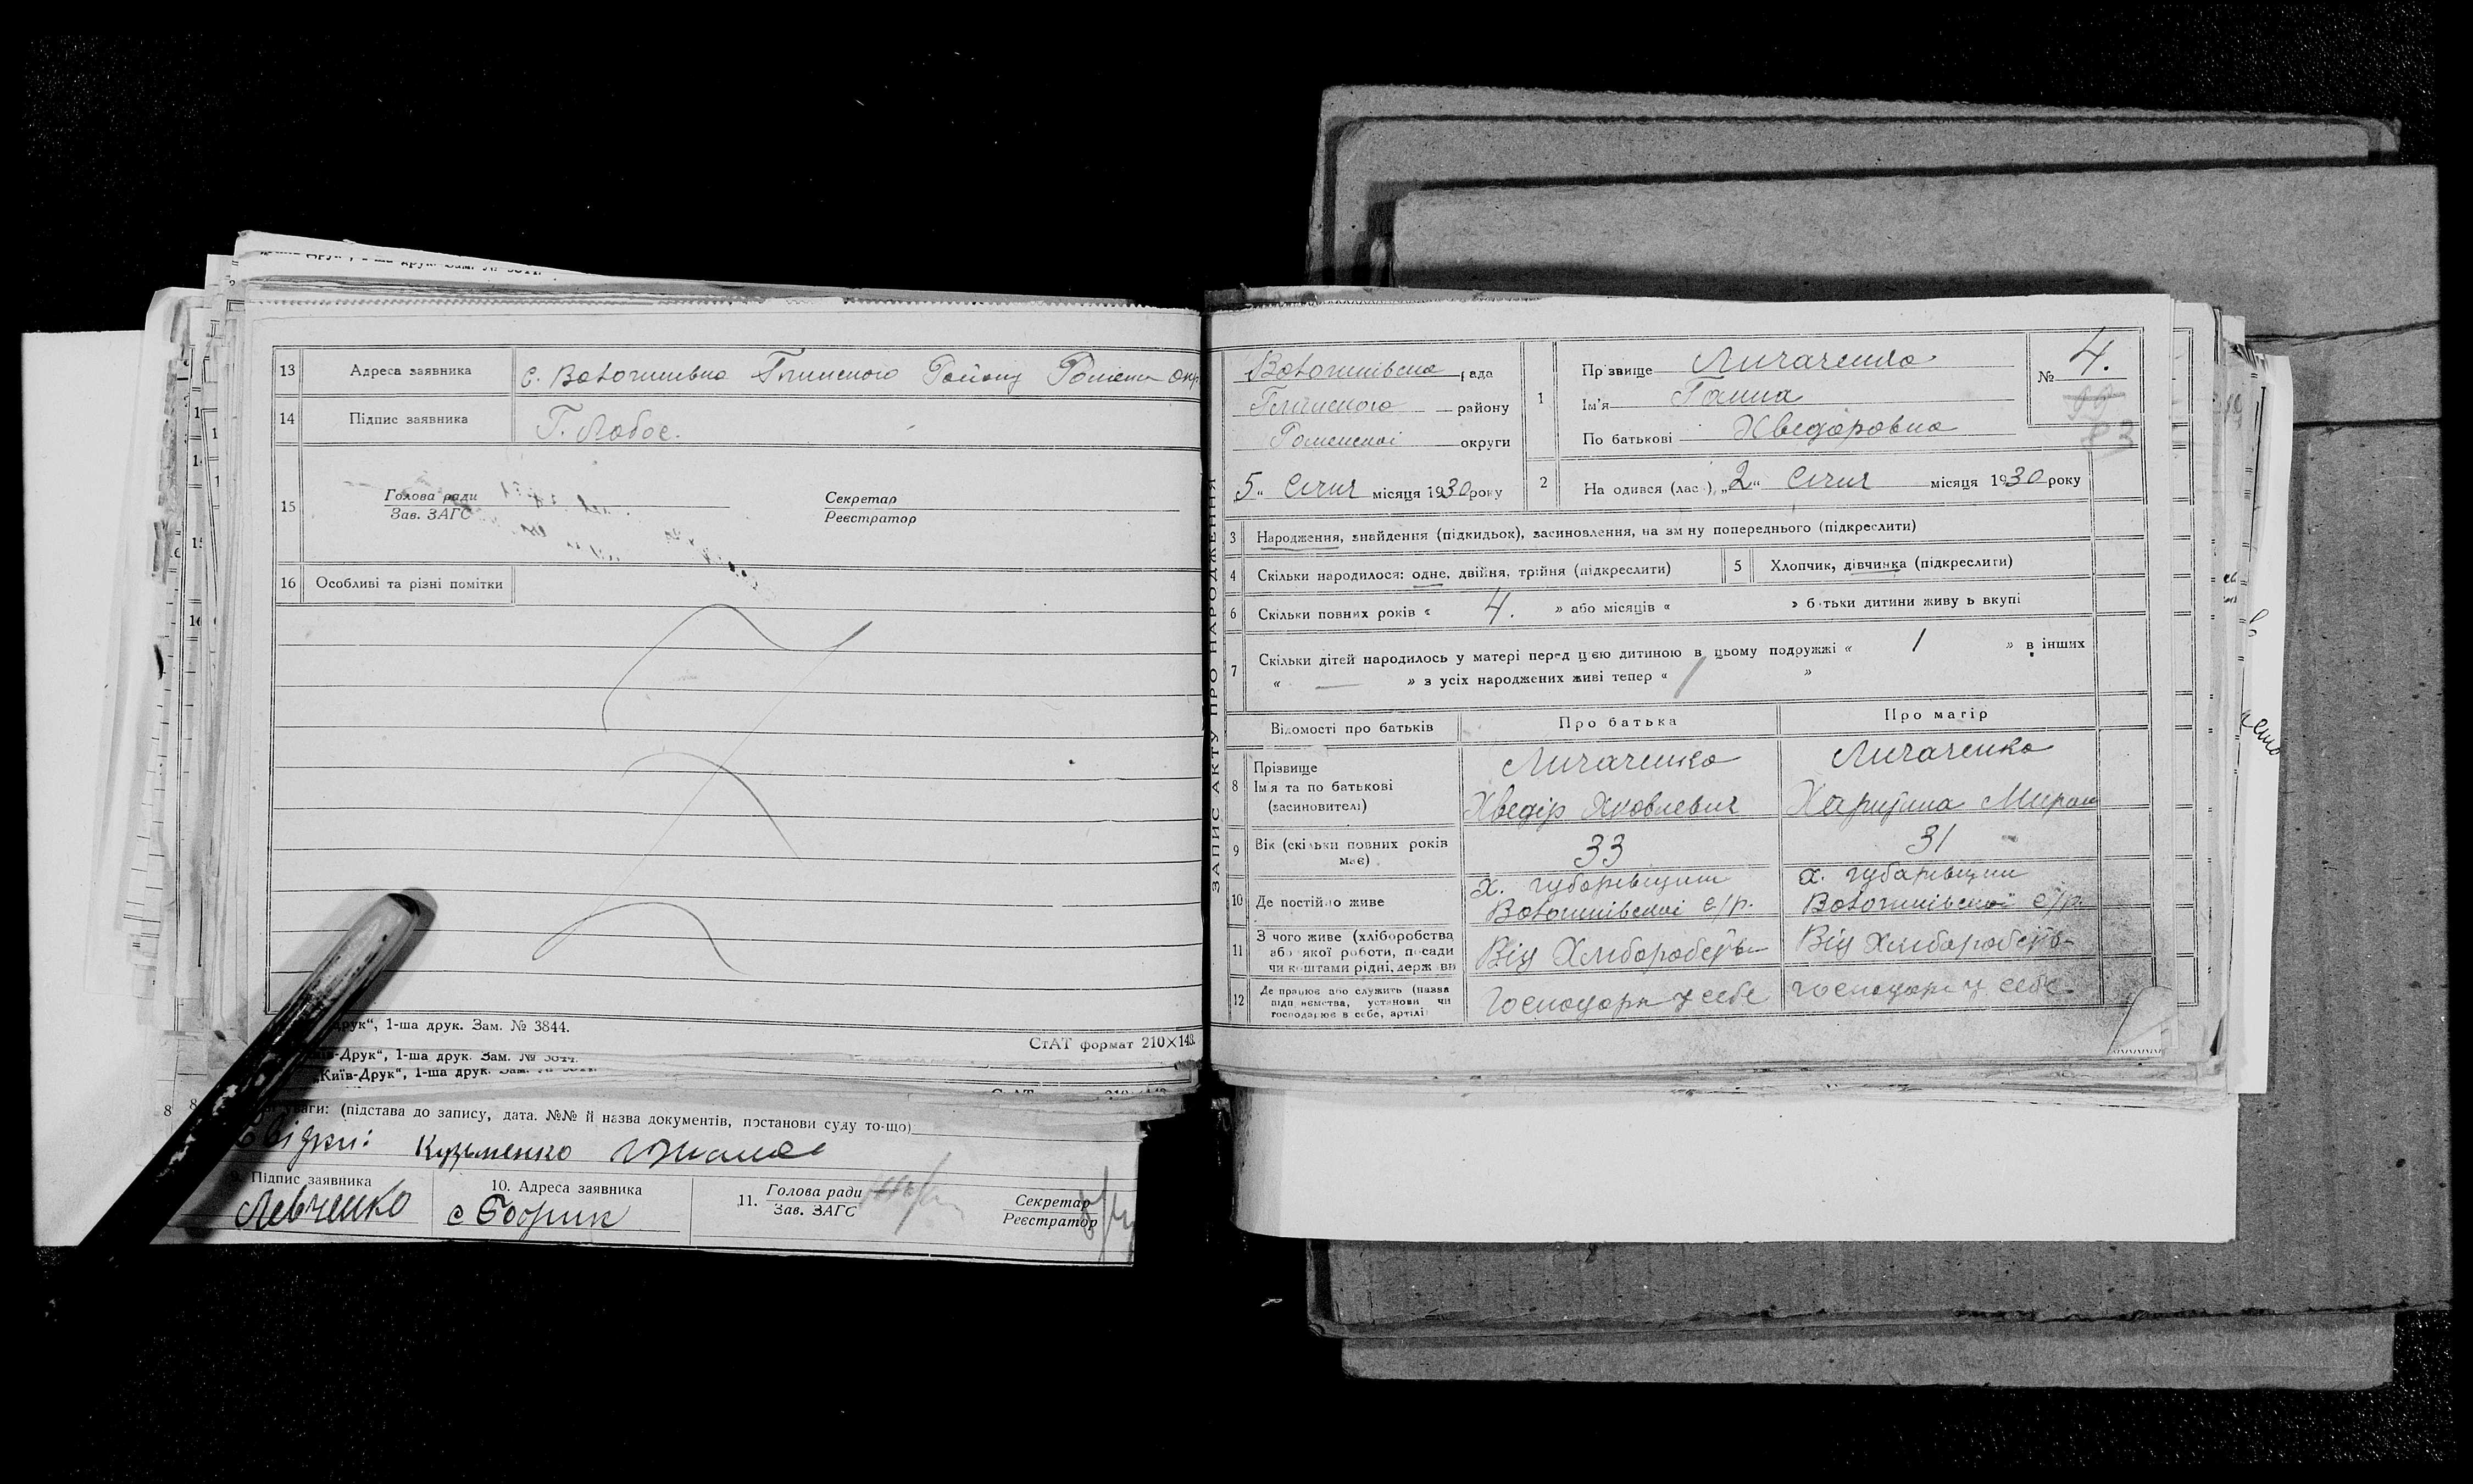 13 Адреса заявника с. Волошнівка Глинського Району Роменськ Окр
14 Підпис заявника Г. Лобос.
15 Голова ради
Зав. ЗАГС
Секретар
Реєстратор
16 Особливі та різні помітки
друк“, 1-ша друк. Зам. № 3844.
СтАТ формат 210×148.
-Друк“, 1-ша друк. Зам. № 3844.
„Київ-Друк“, 1-ша друк.
уваги: (підстава до запису, дата. №№ й назва документів, постанови суду то-що)
Свідки: Кузьменко
9. Підпис заявника
Левченко
10. Адреса заявника
с Бобрик
11. Голова ради
Зав. ЗАГС
Секретар
Реєстратор
ЗАПИС АКТУ ПРО НАРОДЖЕННЯ
Волошнівська рада
Глинського району
Роменської округи
5“ Січня місяця 1930 року
1 Прізвище Личаченко
Ім'я Ганна
По батькові Хведоровна
№ 4.
99
83
2 Народився (лася) „2“ Січня місяця 1930 року
3 Народження, знайдення (підкидьок), засиновлення, на зміну попереднього (підкреслити)
4 Скільки народилося: одне, двійня, трійня (підкреслити)
5 Хлопчик, дівчинка (підкреслити)
6 Скільки повних років « 4. » або місяців « » батьки дитини живуть вкупі
7 Скільки дітей народилось у матері перед цією дитиною в цьому подружжі « 1 » в інших
« — » з усіх народжених живі тепер « 1 »
Відомості про батьків Про батька Про матір
8 Прізвище
Ім'я та по батькові
(засновителі)
Личаченко
Хведір Яковлевич
Личаченко
Харитина Мирон
9 Вік (скільки повних років має) 33 31
10 Де постійно живе
х. Губарівщини
Волошнівської с/р.
х. Губарівщини
Волошнівської с/р.
11 З чого живе (хліборобства
або якої роботи, посади
чи коштами рідні, держави
Від Хліборобств
Від Хліборобств
12 Де працює або служить (назва
підприємства, установи чи
господарює в себе, артілі
Господарк у себе
господар у себе